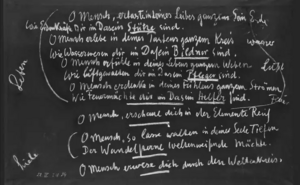 O Mensch, ertaste in deines Leibes ganzem Sein
wie Erdenkräfte dir im Dasein Stütze sind.
O Mensch erlebe in deines Tastens ganzem Kreis
wie Wasserwesen dir im Dasein Bildner sind.
O Mensch erfühle in deines Lebens ganzem Weben
wie Luftgewalten dir im Dasein Pfleger sind.
O Mensch erdenke in deines Fühlens ganzem Strömen
wie Feuermächte dir im Dasein Helfer sind.
O Mensch, erschaue dich in der Elemente Reich
O Mensch, so lasse walten in deiner Seele Tiefen
Der Wandelsterne weltenweisende Mächte.
O Mensch erwese dich durch den Weltenkreis.